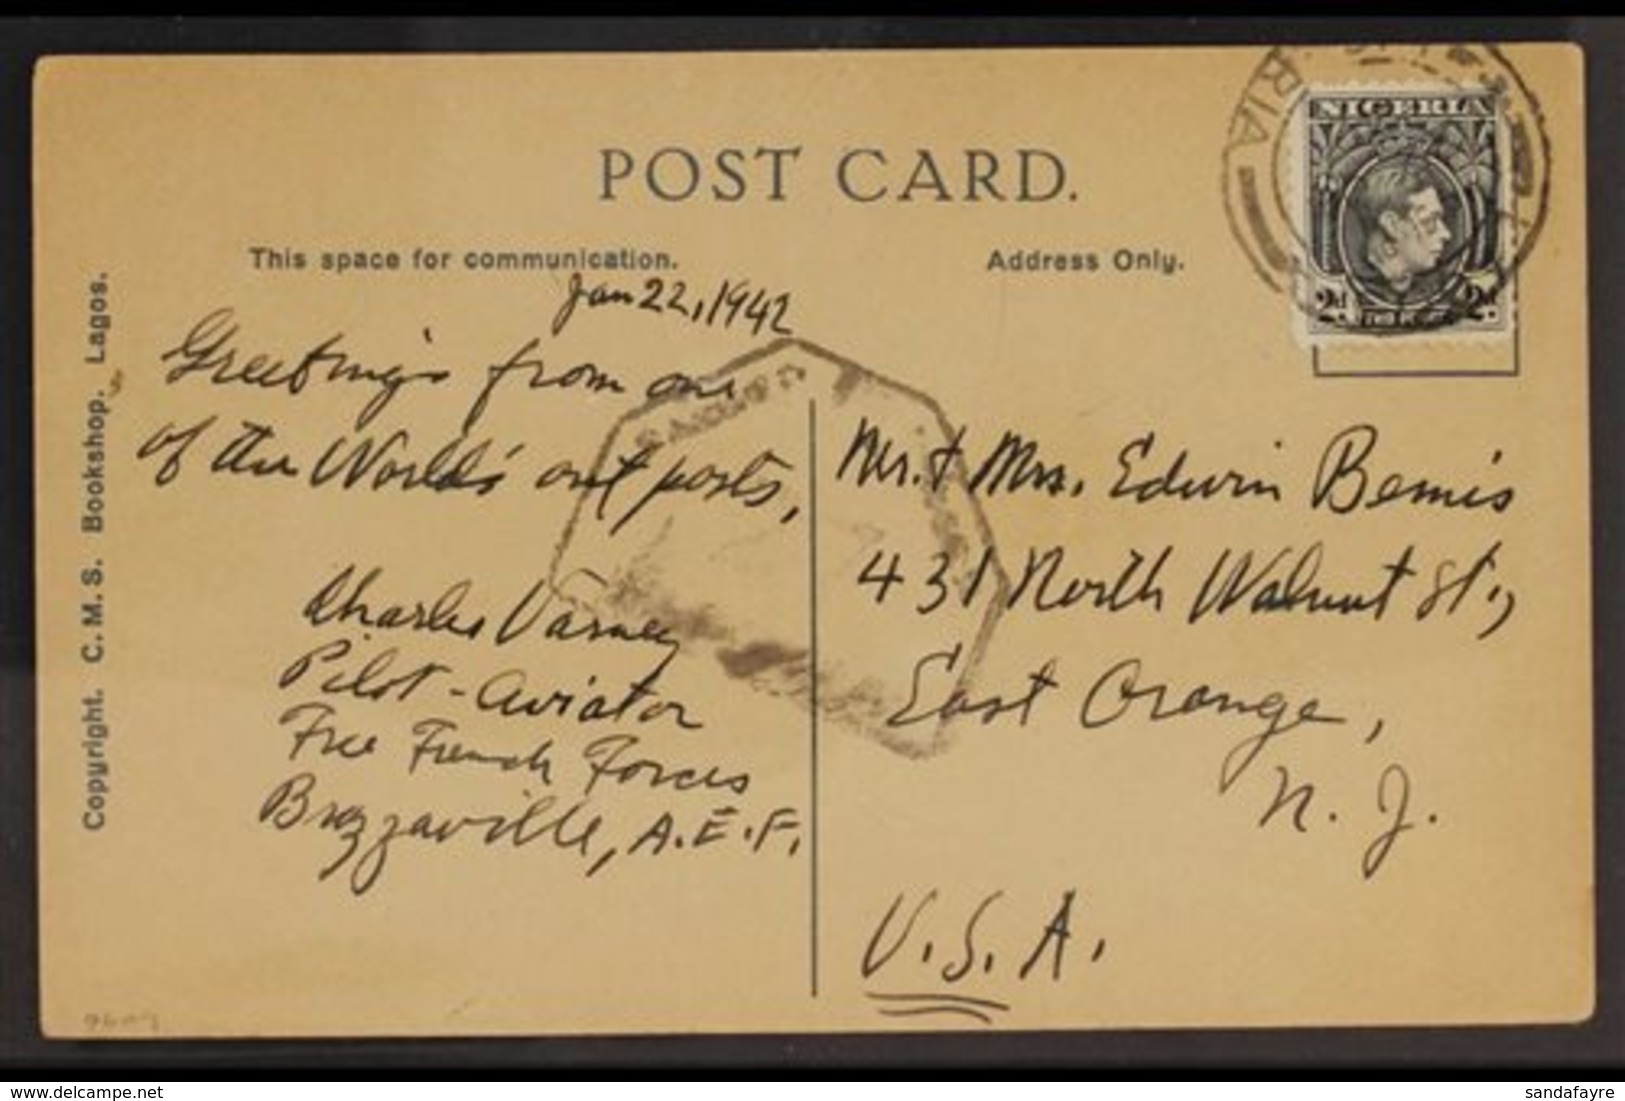 POST CARD.
This space for communication.
Address Only.
Copyright. C. M. S. Bookshop. Lagos.
NIGERIA
2d 2d
RIA
Jan 22, 1942
Greetings from one
of the World's out posts,
Charles Varney
Pilot - Aviator
Free French Forces
Brazzaville, A.E.F.
Mr. & Mrs. Edwin Bemis
431 North Walnut St.,
East Orange,
N. J.
U.S.A.
delcampe.net
sandafayre